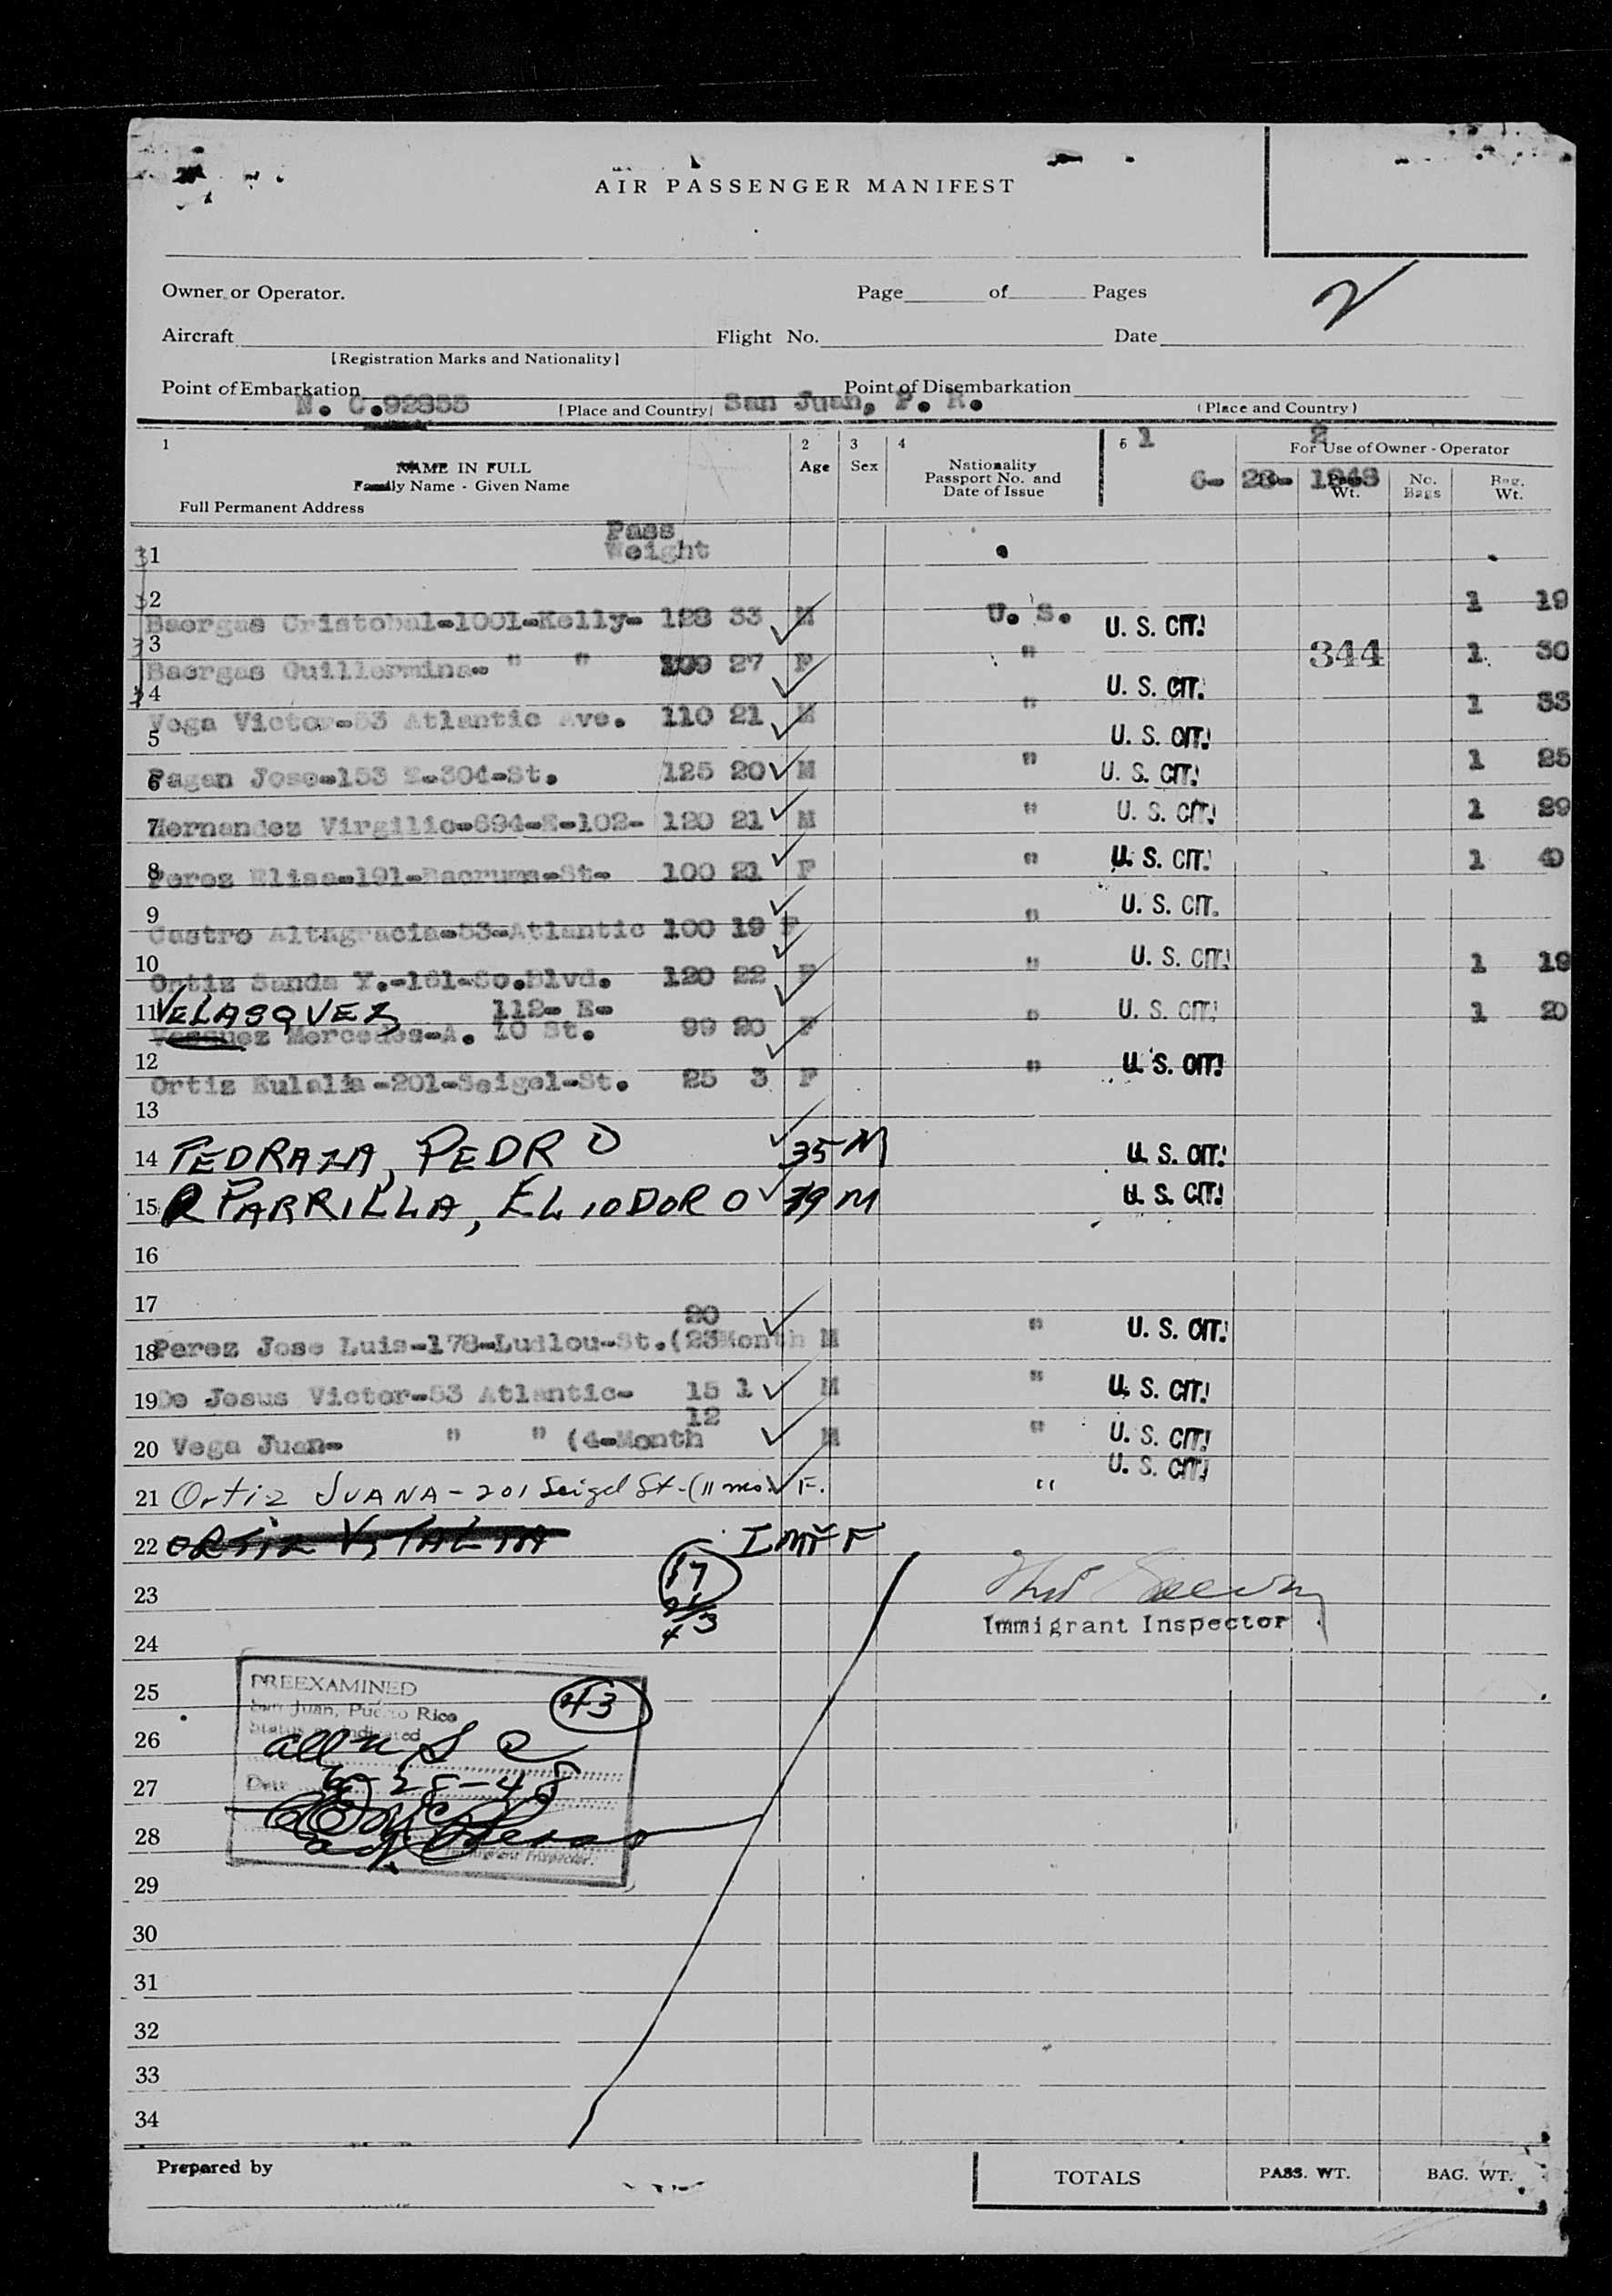 AIR PASSENGER MANIFEST
Owner or Operator.
Page of Pages
2
Aircraft Flight No. Date
[Registration Marks and Nationality]
Point of Embarkation Point of Disembarkation
N. C.92855 [Place and Country] San Juan, P. R. (Place and Country)
1 2 3 4 5 1 2
NAME IN FULL Age Sex Nationality For Use of Owner - Operator
Family Name - Given Name Passport No. and 6- 28- 1948 No. Bag.
Full Permanent Address Date of Issue Wt. Bags Wt.
Pass
1 Weight
2 1 19
Baergas Cristobal-1001-Kelly- 128 33 M U. S. U. S. CIT!
3 344 1 30
Baergas Guillermina- " " 100 27 F " U. S. CIT!
4 1 33
Vega Victor-53 Atlantic Ave. 110 21 M " U. S. CIT!
5 1 25
6 Pagan Jose-153 E-304-St. 125 20 M " U. S. CIT!
7 Hernandez Virgilio-694-E-102- 120 21 M " U. S. CIT! 1 29
8 Perez Elisa-191- -St- 100 21 F " U. S. CIT! 1 40
9 U. S. CIT.
Castro Altagracia-53-Atlantic 100 19 F "
10 U. S. CIT! 1 19
Ortiz Sanda Y.-161-So.Blvd. 120 22 F "
11 VELASQUEZ 112- E- U. S. CIT! 1 20
Mercedes-A. 10 St. 99 20 F "
12 U. S. CIT!
Ortiz Eulalia-201-Seigel-St. 25 3 F "
13
14 PEDRAZA, PEDRO 35 M U. S. CIT!
15 PARRILLA, ELIODORO 19 M U. S. CIT!
16
17
20
18 Perez Jose Luis-178-Ludlou-St.(23Month M " U. S. CIT!
19 De Jesus Victor-53 Atlantic- 15 1 M " U. S. CIT!
12
20 Vega Juan- " " (4-Month M " U. S. CIT!
21 Ortiz JUANA - 201 Seigel St - (11 mos. F. " U. S. CIT!
22 ORTIZ VITALIA F
17
23
Immigrant Inspector
24
25 PREEXAMINED 43
San Juan, Puerto Rico
Status as indicated
26 all U S C
27 Date 6-28-48
28
Immigrant Inspector.
29
30
31
32
33
34
Prepared by TOTALS PASS. WT. BAG. WT.